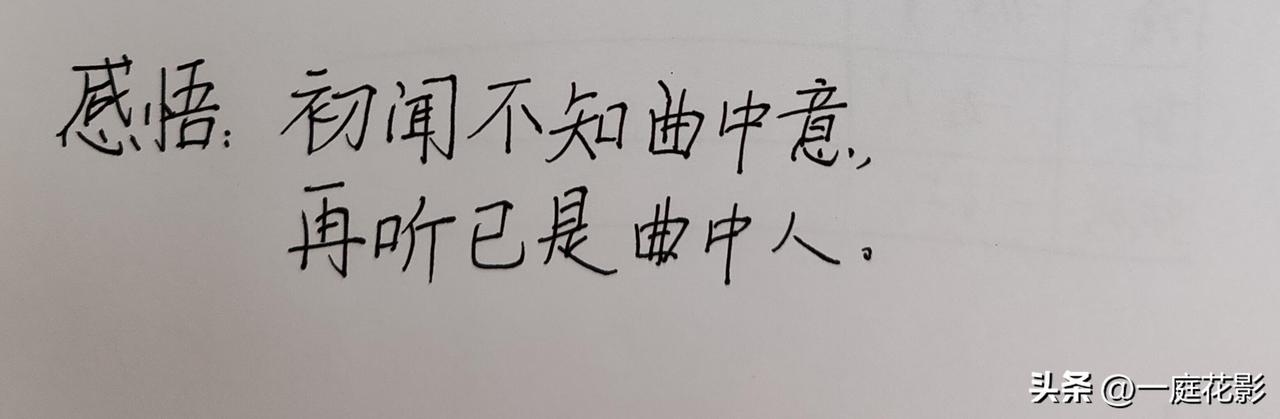 感悟：初闻不知曲中意，
再听已是曲中人。
头条 @一庭花影